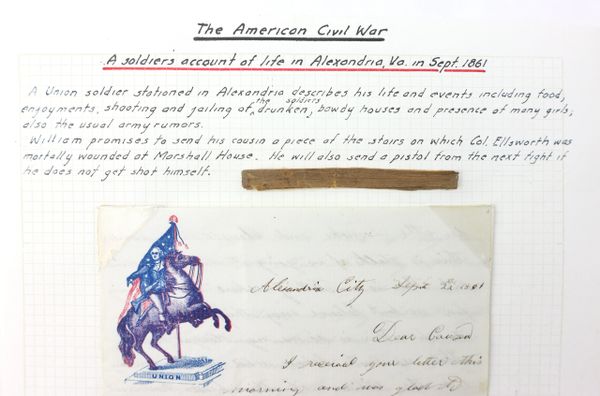 The American Civil War
A soldiers account of life in Alexandria, Va. in Sept. 1861
A Union soldier stationed in Alexandria describes his life and events including food,
enjoyments, shooting and jailing of the drunken soldiers, bawdy houses and presence of many girls;
also the usual army rumors.
William promises to send his cousin a piece of the stairs on which Col. Ellsworth was
mortally wounded at Marshall House. He will also send a pistol from the next fight if
he does not get shot himself.
Alexandria City Sept 22 1861
Dear Cousin
I received your letter this
morning and was glad to
UNION